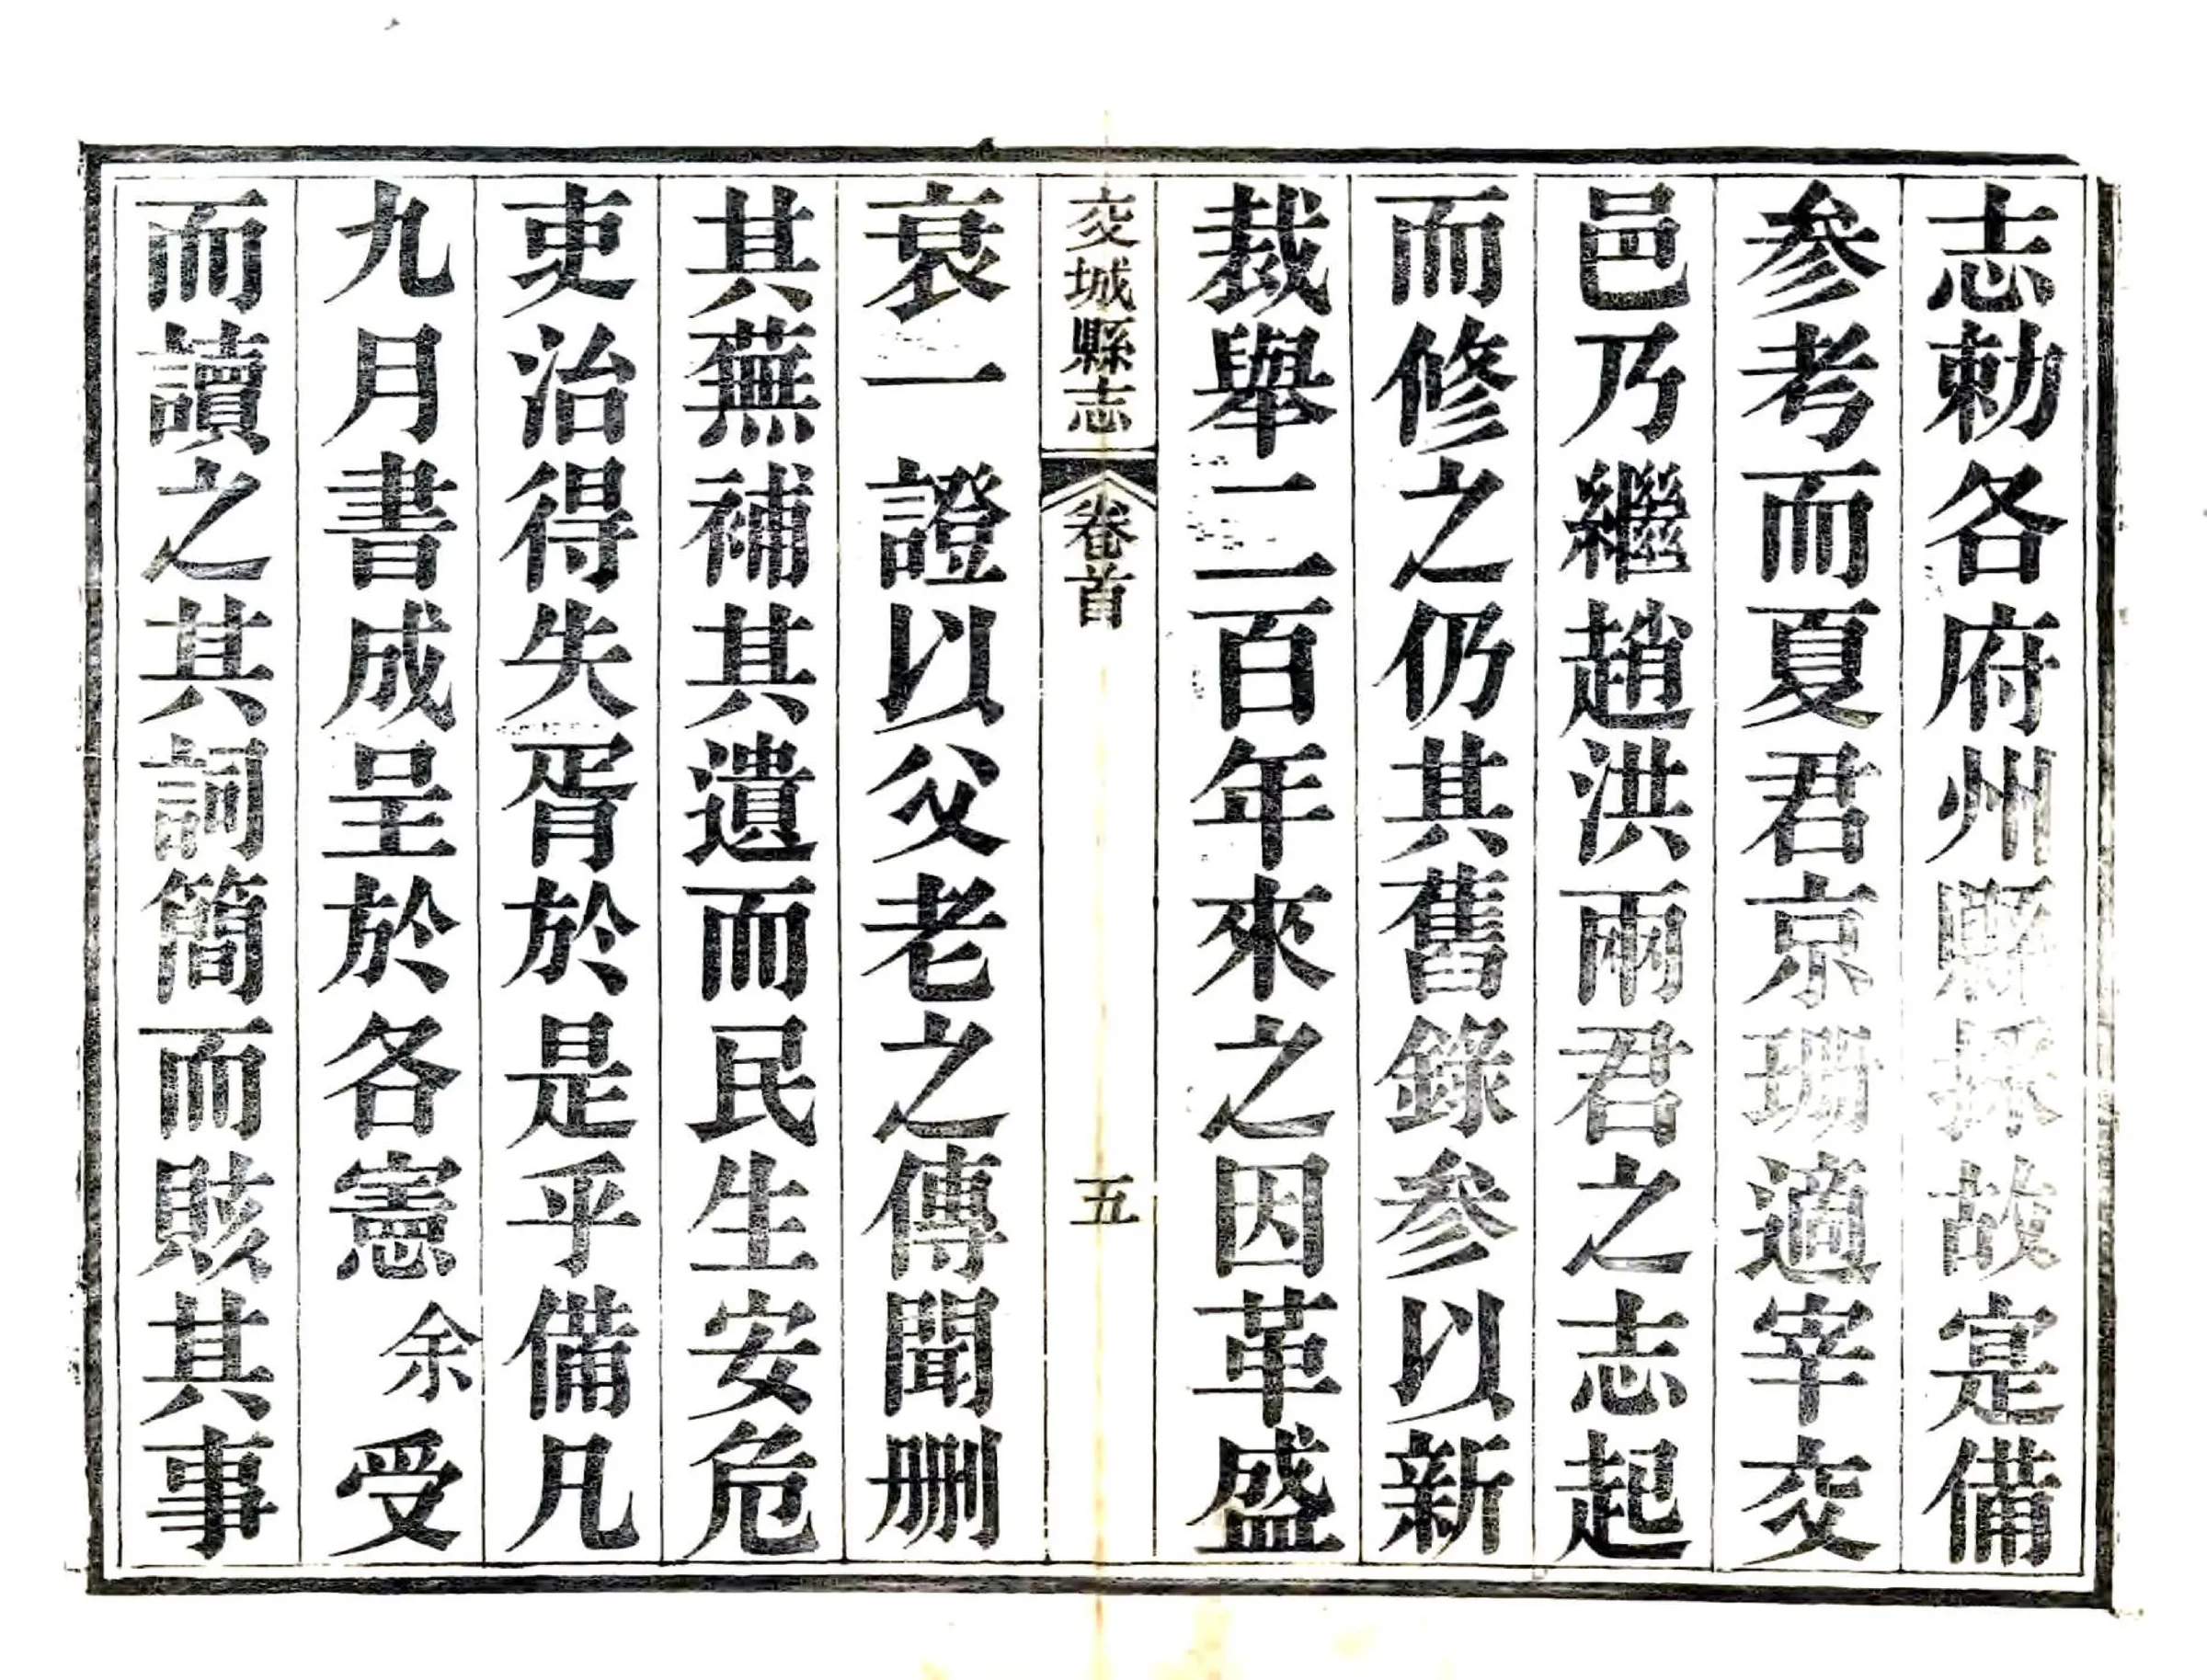 志勅各府州縣採故寔備
参考而夏君京珊適宰交
邑乃繼趙洪兩君之志起
而修之仍其舊錄参以新
裁舉二百年來之因革盛
交城縣志
卷首
五
衰一一證以父老之傳聞刪
其蕪補其遺而民生安危
吏治得失胥於是乎備凡
九月書成呈於各憲余受
而讀之其詞簡而賅其事